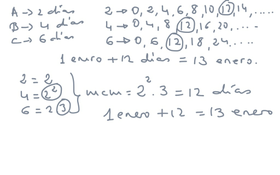 A → 2 días 2 → 0, 2, 4, 6, 8, 10, 12, 14, .....
B → 4 días 4 → 0, 4, 8, 12, 16, 20, .....
C → 6 días 6 → 0, 6, 12, 18, 24, .....
1 enero + 12 días = 13 enero.
2 = 2
4 = 2²
6 = 2 3
mcm = 2² · 3 = 12 días
1 enero + 12 = 13 enero